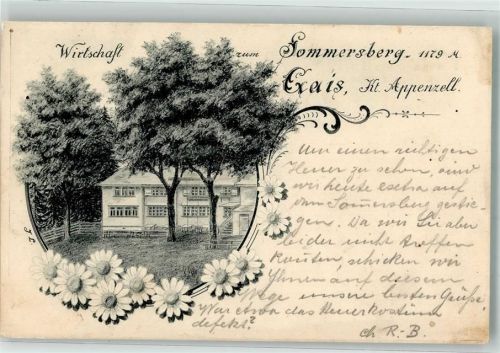 Wirtschaft zum Sommersberg 1179 M.
Gais, Kt. Appenzell.
Um einen richtigen
Heuer zu sehen, sind
wir heute extra auf
den Sommersberg gestie-
gen. Da wir Sie aber
leider nicht treffen
konnten, schicken wir
Ihnen auf diesem
Wege unsere besten Grüsse.
War etwa das Heuerkostüm
defekt?
R.-B.